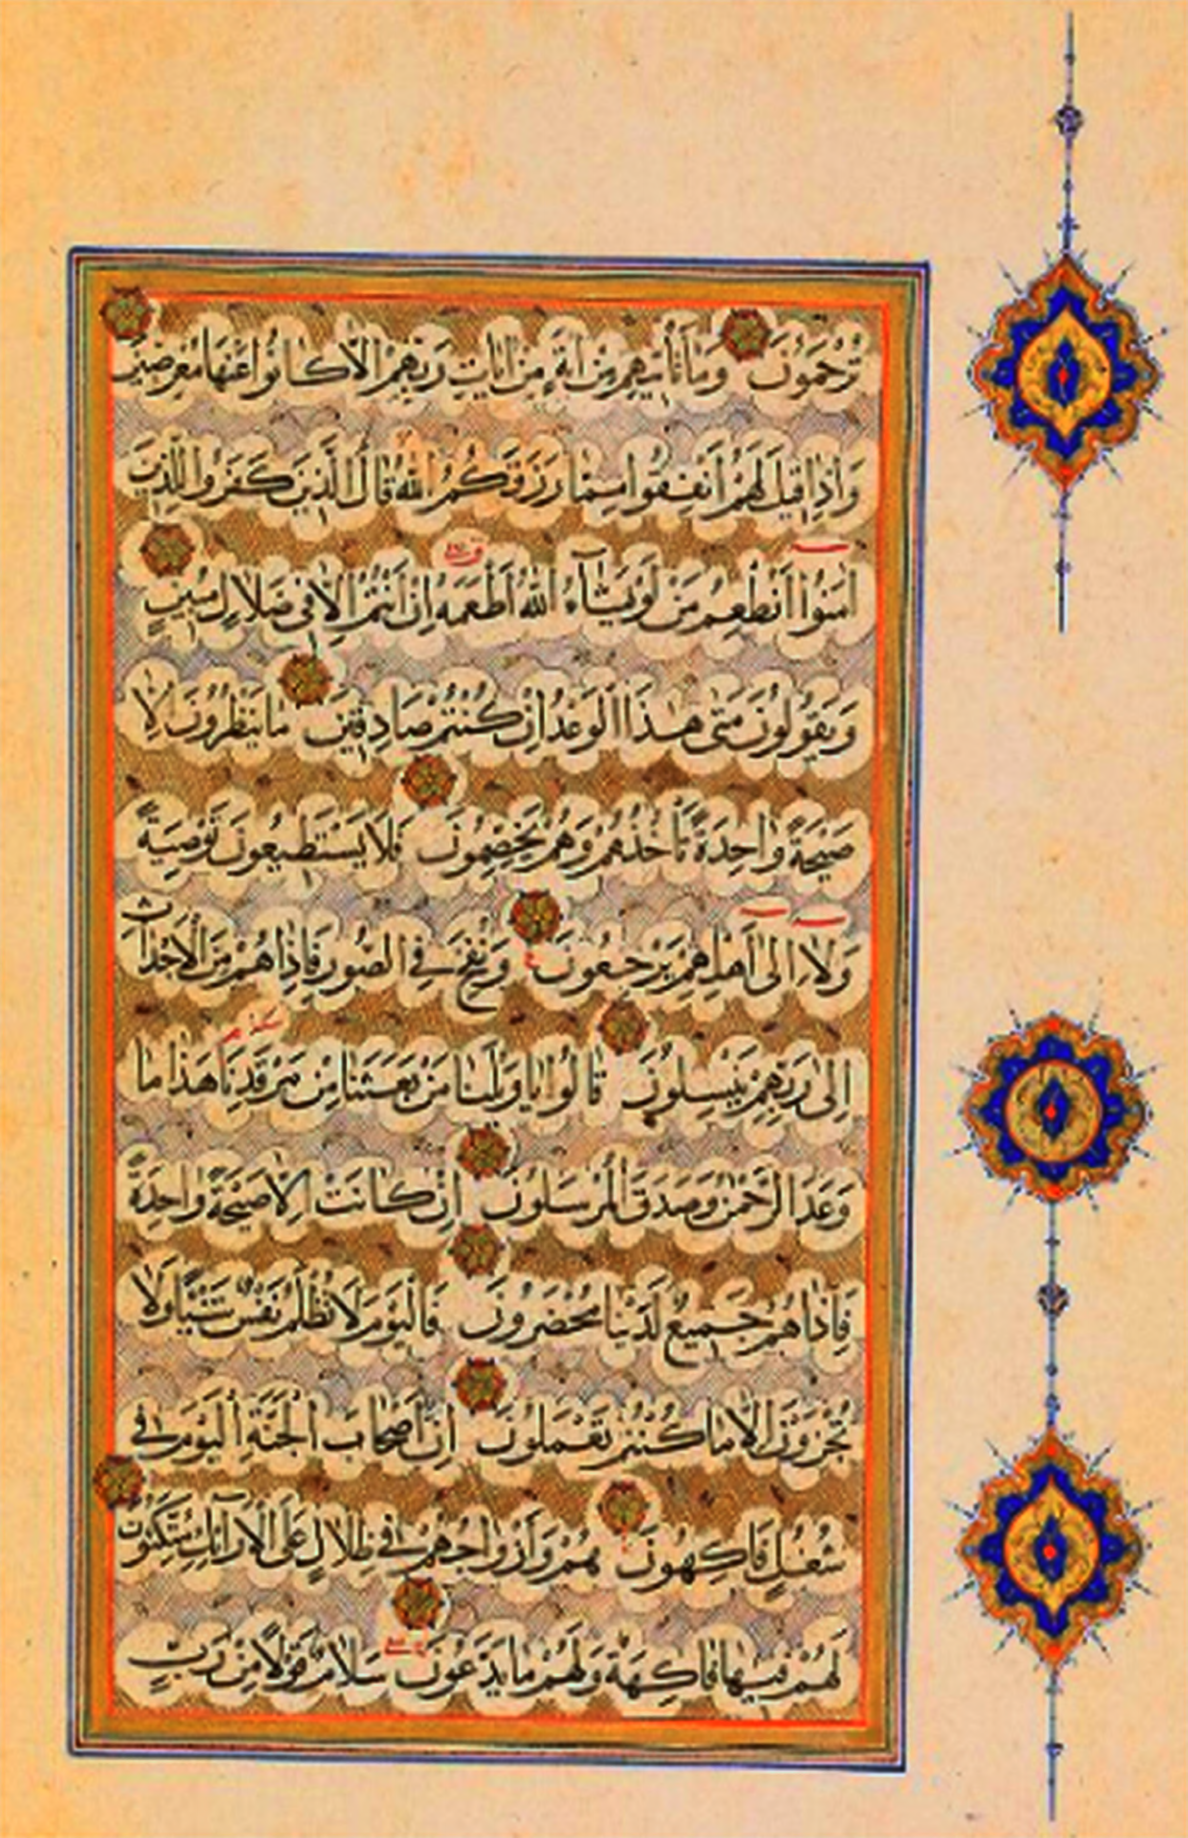 تُرْحَمُونَ وَمَا تَأْتِيهِمْ مِنْ آيَةٍ مِنْ آيَاتِ رَبِّهِمْ إِلَّا كَانُوا عَنْهَا مُعْرِضِينَ
وَإِذَا قِيلَ لَهُمْ أَنْفِقُوا مِمَّا رَزَقَكُمُ اللَّهُ قَالَ الَّذِينَ كَفَرُوا لِلَّذِينَ
آمَنُوا أَنُطْعِمُ مَنْ لَوْ يَشَاءُ اللَّهُ أَطْعَمَهُ إِنْ أَنْتُمْ إِلَّا فِي ضَلَالٍ مُبِينٍ
وَيَقُولُونَ مَتَى هَذَا الْوَعْدُ إِنْ كُنْتُمْ صَادِقِينَ مَا يَنْظُرُونَ إِلَّا
صَيْحَةً وَاحِدَةً تَأْخُذُهُمْ وَهُمْ يَخِصِّمُونَ فَلَا يَسْتَطِيعُونَ تَوْصِيَةً
وَلَا إِلَى أَهْلِهِمْ يَرْجِعُونَ وَنُفِخَ فِي الصُّورِ فَإِذَا هُمْ مِنَ الْأَجْدَاثِ
إِلَى رَبِّهِمْ يَنْسِلُونَ قَالُوا يَا وَيْلَنَا مَنْ بَعَثَنَا مِنْ مَرْقَدِنَا هَذَا مَا
وَعَدَ الرَّحْمَنُ وَصَدَقَ الْمُرْسَلُونَ إِنْ كَانَتْ إِلَّا صَيْحَةً وَاحِدَةً
فَإِذَا هُمْ جَمِيعٌ لَدَيْنَا مُحْضَرُونَ فَالْيَوْمَ لَا تُظْلَمُ نَفْسٌ شَيْئًا وَلَا
تُجْزَوْنَ إِلَّا مَا كُنْتُمْ تَعْمَلُونَ إِنَّ أَصْحَابَ الْجَنَّةِ الْيَوْمَ فِي
شُغُلٍ فَاكِهُونَ هُمْ وَأَزْوَاجُهُمْ فِي ظِلَالٍ عَلَى الْأَرَائِكِ مُتَّكِئُونَ
لَهُمْ فِيهَا فَاكِهَةٌ وَلَهُمْ مَا يَدَّعُونَ سَلَامٌ قَوْلًا مِنْ رَبٍّ